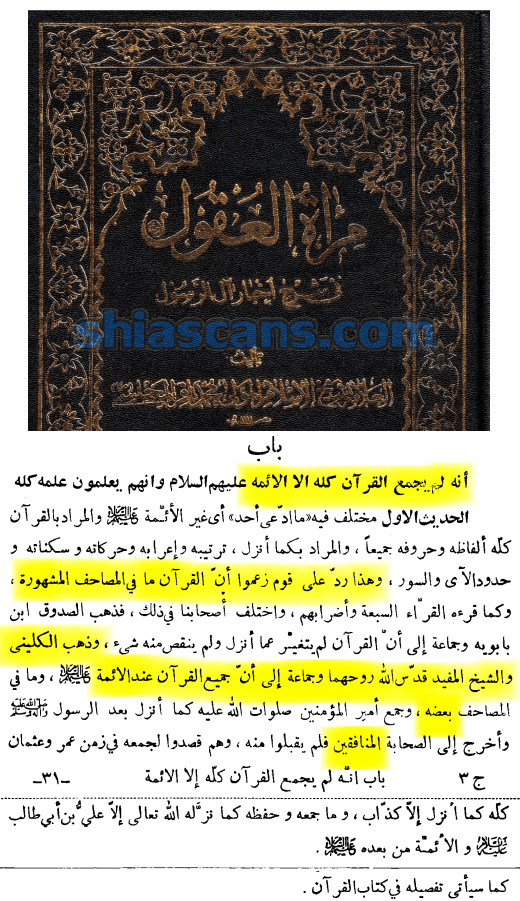 مرآة العقول
في شرح أخبار آل الرسول
shiascans.com
تأليف
باب
أنه لم يجمع القرآن كله الا الائمه عليهم السلام وانهم يعلمون علمه كله
الحديث الاول مختلف فيه «ما ادّعى أحد» أي غير الأئمّة عليهم السلام والمراد بالقرآن
كلّه ألفاظه وحروفه جميعاً ، والمراد بكما أنزل ، ترتيبه وإعرابه وحركاته و سكناته و
حدود الآى والسور ، وهذا ردّ على قوم زعموا أنّ القرآن ما في المصاحف المشهورة ،
وكما قرءه القرّاء السبعة وأضرابهم ، واختلف أصحابنا في ذلك ، فذهب الصدوق ابن
بابويه وجماعة إلى أنّ القرآن لم يتغيّر عما أنزل ولم ينقص منه شيء ، وذهب الكليني
والشيخ المفيد قدّس الله روحهما وجماعة إلى أنّ جميع القرآن عند الائمة عليهم السلام ، وما في
المصاحف بعضه ، وجمع أمير المؤمنين صلوات الله عليه كما أنزل بعد الرسول صلى الله عليه وآله وسلم
وأخرج إلى الصحابة المنافقين فلم يقبلوا منه ، وهم قصدوا لجمعه في زمن عمر وعثمان
ج ٣ باب انّه لم يجمع القرآن كلّه إلا الائمة -٣١-
كلّه كما أُنزل إلاّ كذّاب ، و ما جمعه و حفظه كما نزّله الله تعالى إلاّ عليّ بن أبي طالب
عليه السلام و الأئمّة من بعده عليهم السلام .
كما سيأتي تفصيله في كتاب القرآن .